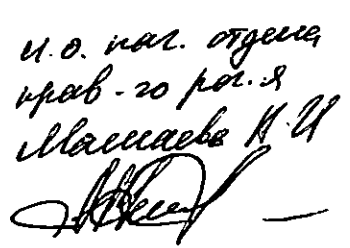 и.о. нач. отдела
прав-го рег.я
Машаева Н.И